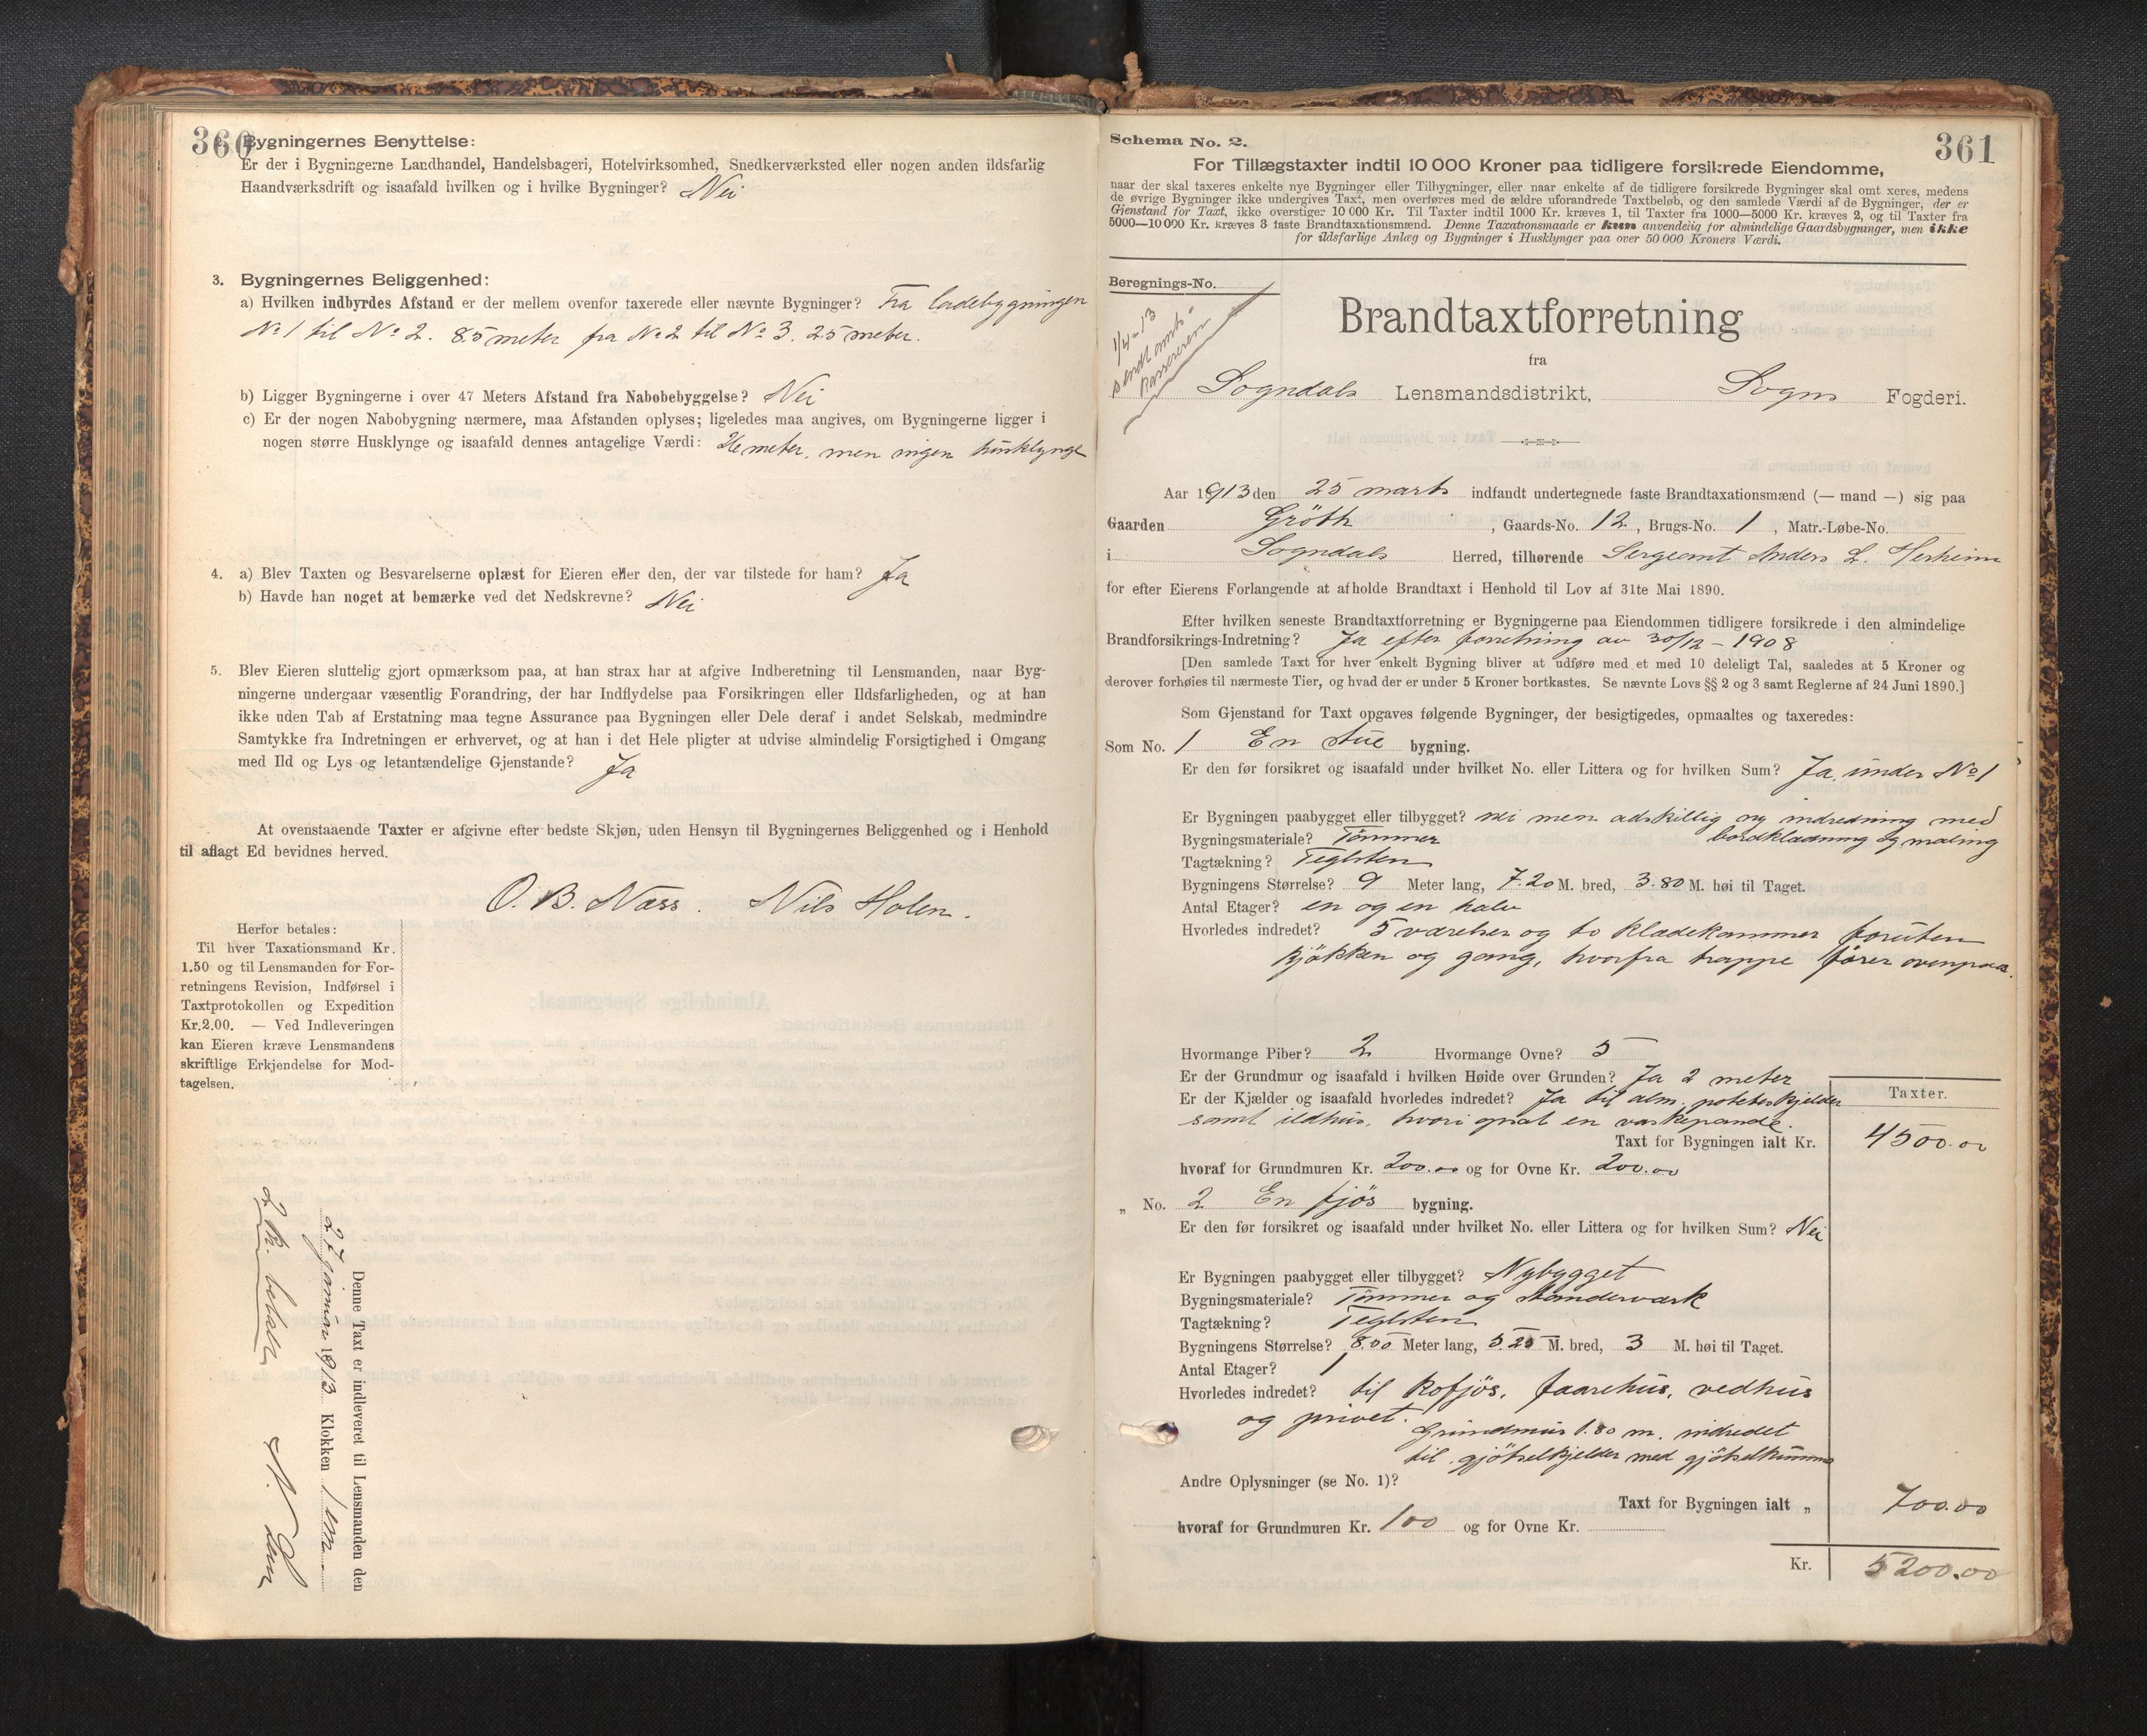 360
2. Bygningernes Benyttelse:
Er der i Bygningerne Landhandel, Handelsbageri, Hotelvirksomhed, Snedkerværksted eller nogen anden ildsfarlig
Haandværksdrift og isaafald hvilken og i hvilke Bygninger? Nei
3. Bygningernes Beliggenhed:
a) Hvilken indbyrdes Afstand er der mellem ovenfor taxerede eller nævnte Bygninger? Fra ladebygningen
No 1 til No 2. 85 meter fra No 2 til No 3. 25 meter.
b) Ligger Bygningerne i over 47 Meters Afstand fra Nabobebyggelse? Nei
c) Er der nogen Nabobygning nærmere, maa Afstanden oplyses; ligeledes maa angives, om Bygningerne ligger i
nogen større Husklynge og isaafald dennes antagelige Værdi: 26 meter, men ingen husklynge
4. a) Blev Taxten og Besvarelserne oplæst for Eieren eller den, der var tilstede for ham? Ja
b) Havde han noget at bemærke ved det Nedskrevne? Nei
5. Blev Eieren sluttelig gjort opmærksom paa, at han strax har at afgive Indberetning til Lensmanden, naar Byg-
ningerne undergaar væsentlig Forandring, der har Indflydelse paa Forsikringen eller Ildsfarligheden, og at han
ikke uden Tab af Erstatning maa tegne Assurance paa Bygningen eller Dele deraf i andet Selskab, medmindre
Samtykke fra Indretningen er erhvervet, og at han i det Hele pligter at udvise almindelig Forsigtighed i Omgang
med Ild og Lys og letantændelige Gjenstande? Ja
At ovenstaaende Taxter er afgivne efter bedste Skjøn, uden Hensyn til Bygningernes Beliggenhed og i Henhold
til aflagt Ed bevidnes herved.
O. B. Næss. Nils Holen.
Herfor betales:
Til hver Taxationsmand Kr.
1.50 og til Lensmanden for For-
retningens Revision, Indførsel i
Taxtprotokollen og Expedition
Kr. 2.00. — Ved Indleveringen
kan Eieren kræve Lensmandens
skriftlige Erkjendelse for Mod-
tagelsen.
Denne Taxt er indleveret til Lensmanden den
27 januar 1913 Klokken 1 em.
2 Kr. betalt
361
Schema No. 2.
For Tillægstaxter indtil 10 000 Kroner paa tidligere forsikrede Eiendomme,
naar der skal taxeres enkelte nye Bygninger eller Tilbygninger, eller naar enkelte af de tidligere forsikrede Bygninger skal omtaxeres, medens
de øvrige Bygninger ikke undergives Taxt, men overføres med de ældre uforandrede Taxtbeløb, og den samlede Værdi af de Bygninger, der er
Gjenstand for Taxt, ikke overstiger 10 000 Kr. Til Taxter indtil 1000 Kr. kræves 1, til Taxter fra 1000—5000 Kr. kræves 2, og til Taxter fra
5000—10 000 Kr. kræves 3 faste Brandtaxationsmænd. Denne Taxationsmaade er kun anvendelig for almindelige Gaardsbygninger, men ikke
for ildsfarlige Anlæg og Bygninger i Husklynger paa over 50 000 Kroners Værdi.
Beregnings-No.
1/4-13
sendt amts-
kassereren
Brandtaxtforretning
fra
Sogndals Lensmandsdistrikt, Sogns Fogderi.
Aar 1913 den 25 marts indfandt undertegnede faste Brandtaxationsmænd (— mand —) sig paa
Gaarden Gröth, Gaards-No. 12, Brugs-No. 1, Matr.-Løbe-No.
i Sogndals Herred, tilhørende Sergeant Anders L. Herheim
for efter Eierens Forlangende at afholde Brandtaxt i Henhold til Lov af 31te Mai 1890.
Efter hvilken seneste Brandtaxtforretning er Bygningerne paa Eiendommen tidligere forsikrede i den almindelige
Brandforsikrings-Indretning? Ja efter forretning av 30/12 - 1908
[Den samlede Taxt for hver enkelt Bygning bliver at udføre med et med 10 deleligt Tal, saaledes at 5 Kroner og
derover forhøies til nærmeste Tier, og hvad der er under 5 Kroner bortkastes. Se nævnte Lovs §§ 2 og 3 samt Reglerne af 24 Juni 1890.]
Som Gjenstand for Taxt opgaves følgende Bygninger, der besigtigedes, opmaaltes og taxeredes:
Som No. 1 En stue bygning.
Er den før forsikret og isaafald under hvilket No. eller Littera og for hvilken Sum? Ja, under No 1
Er Bygningen paabygget eller tilbygget? nei men adskillig ny indredning med
bordklædning og maling
Bygningsmateriale? Tömmer
Tagtækning? Teglsten
Bygningens Størrelse? 9 Meter lang, 7.20 M. bred, 3.80 M. høi til Taget.
Antal Etager? en og en halv
Hvorledes indredet? 5 værelser og to klædekammer foruten
kjökken og gang, hvorfra trappe förer ovenpaa.
Hvormange Piber? 2 Hvormange Ovne? 5
Er der Grundmur og isaafald i hvilken Høide over Grunden? Ja 2 meter
Er der Kjælder og isaafald hvorledes indredet? Ja til alm. poteteskjelder
samt ildhus, hvori en vaskepande.
Taxter.
Taxt for Bygningen ialt Kr. 4500.00
hvoraf for Grundmuren Kr. 200.00 og for Ovne Kr. 200.00
„ No. 2 En fjös bygning.
Er den før forsikret og isaafald under hvilket No. eller Littera og for hvilken Sum? Nei
Er Bygningen paabygget eller tilbygget? Nybygget
Bygningsmateriale? Tömmer og standerværk
Tagtækning? Teglsten
Bygningens Størrelse? 8.00 Meter lang, 5.25 M. bred, 3 M. høi til Taget.
Antal Etager? 1
Hvorledes indredet? til kofjös, faarehus, vedhus
og privet. Grundmur 1.80 m. indredet
til gjödselkjelder med gjödselkumme
Andre Oplysninger (se No. 1)?
Taxt for Bygningen ialt „ 700.00
hvoraf for Grundmuren Kr. 100 og for Ovne Kr.
Kr. 5200.00